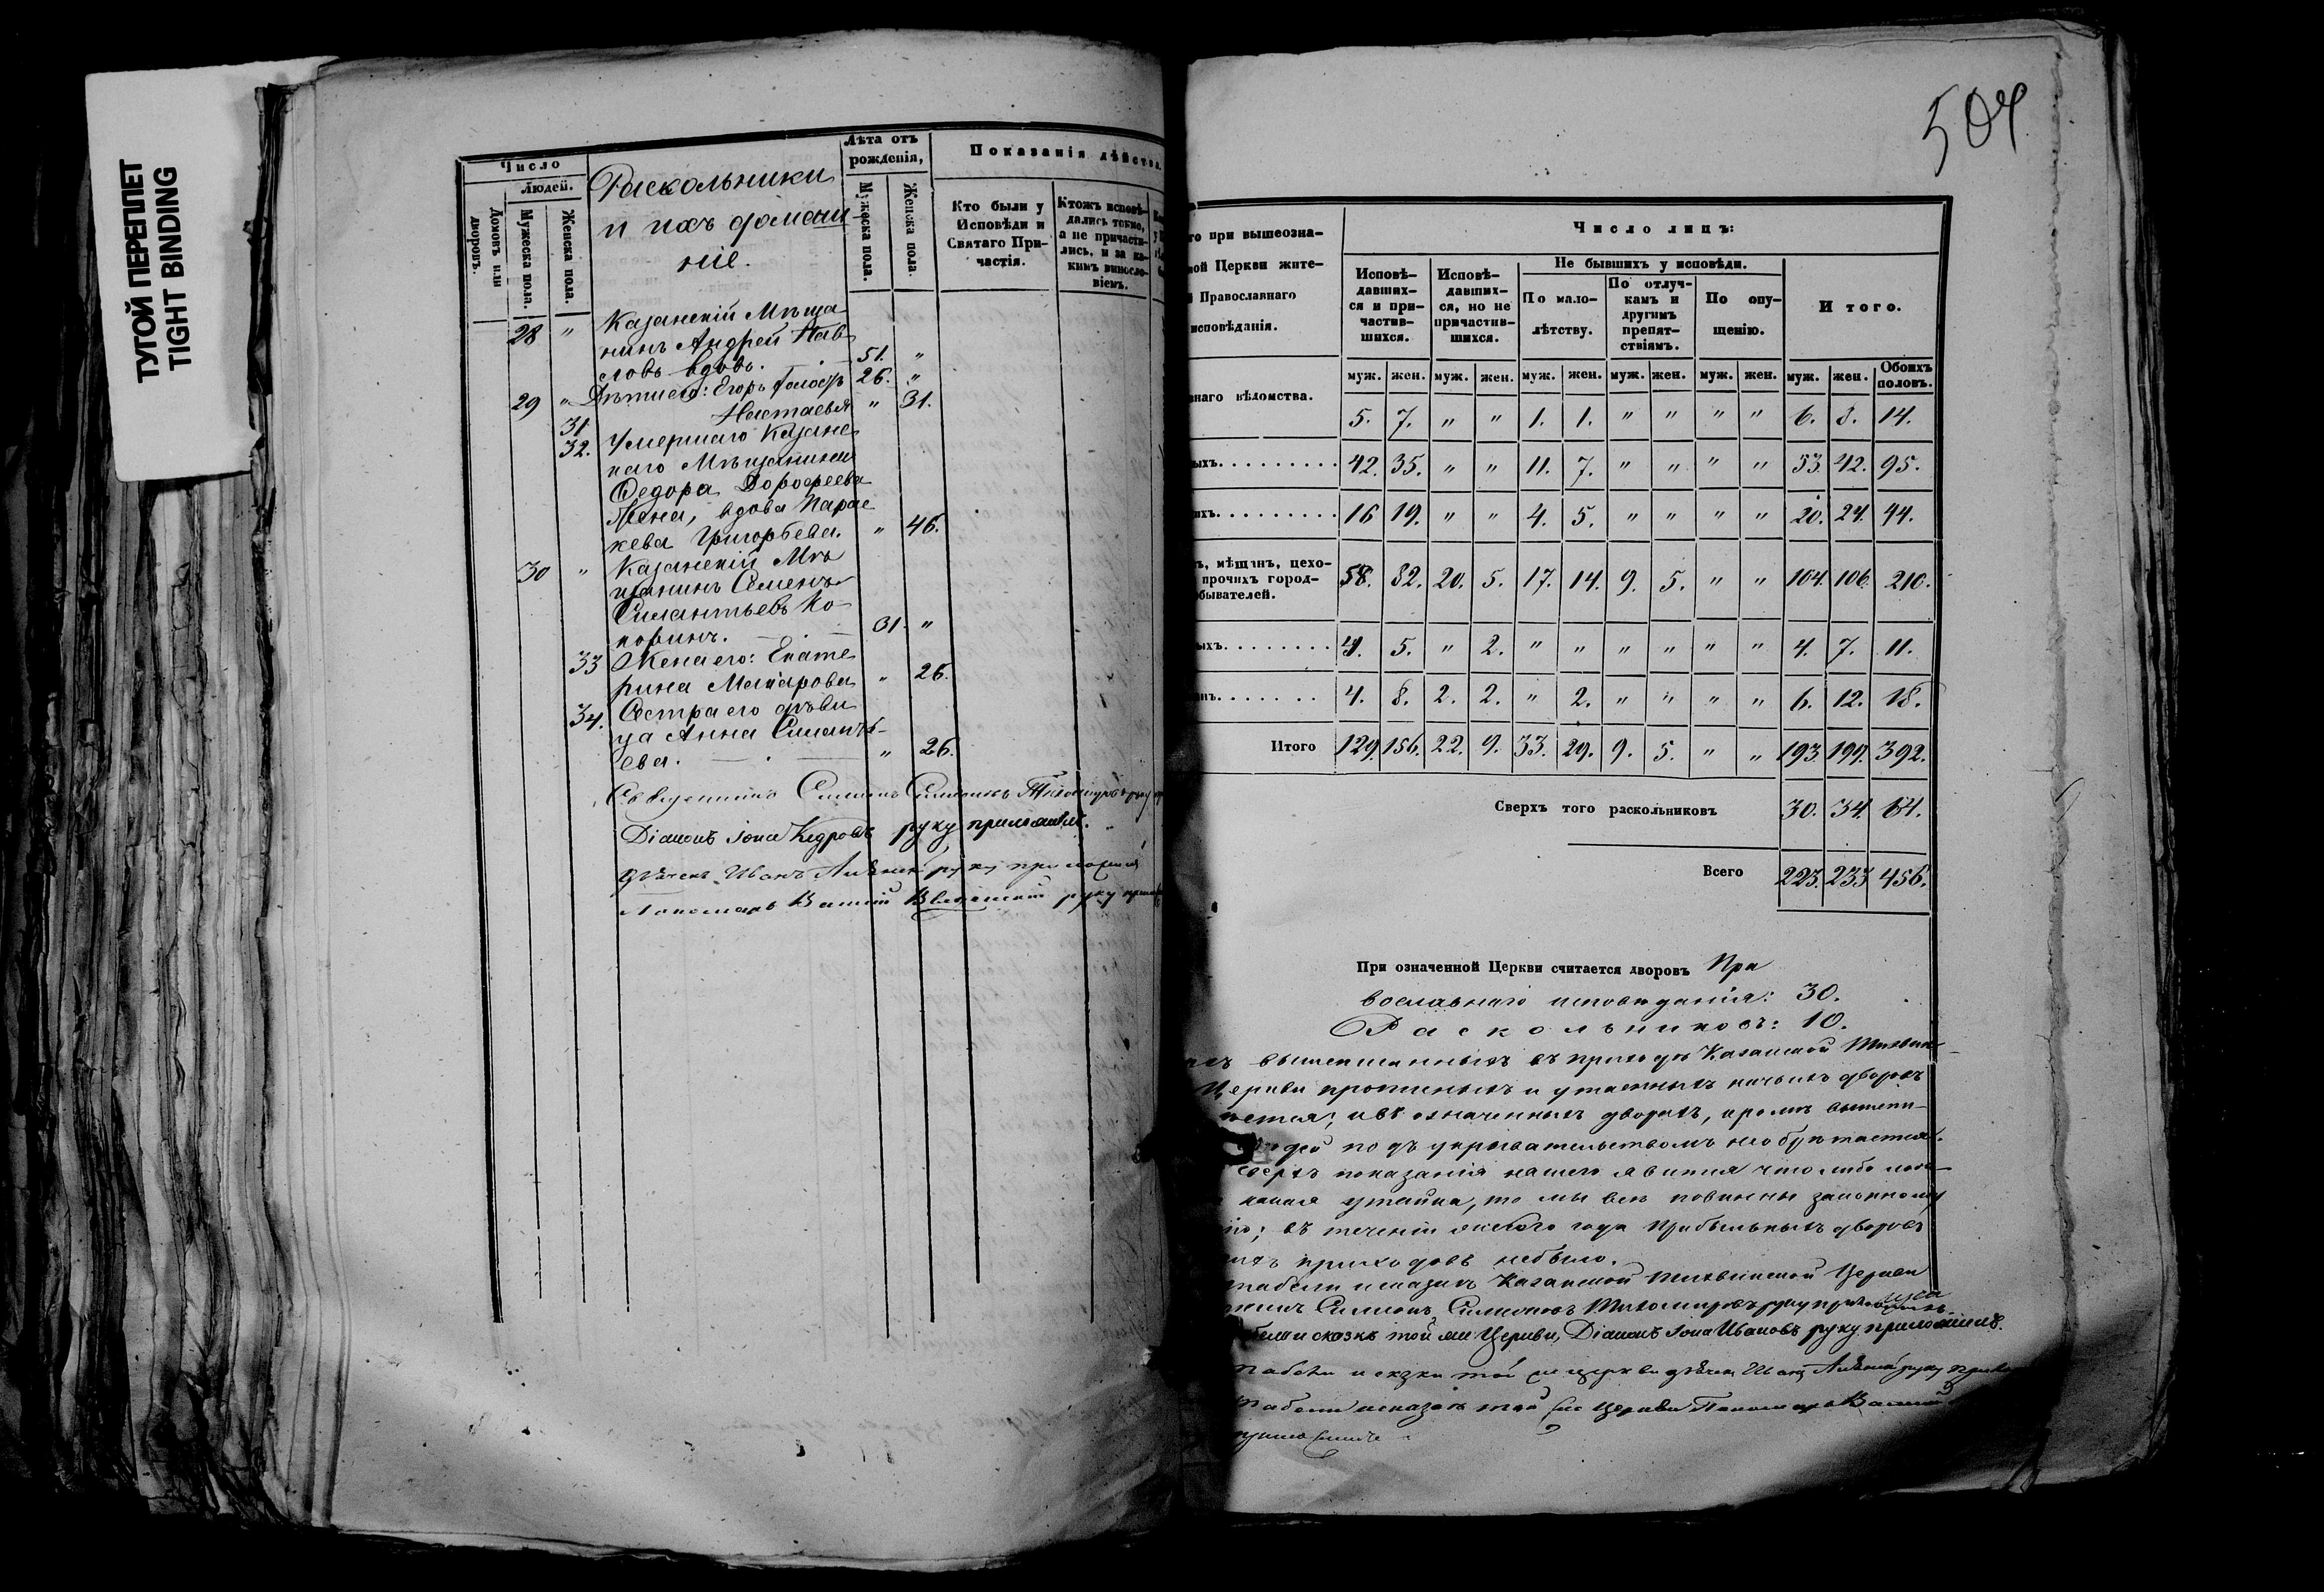 ТУГОЙ ПЕРЕПЛЕТ
TIGHT BINDING
Число
Людей.
Домовъ или дворовъ.
Мужеска пола.
Женска пола.
Раскольники
и ихъ домаш
ніе.
Лѣта отъ рожденія,
Мужеска пола.
Женска пола.
Показанія дѣйств
Кто были у Исповѣди и Святаго Причастія.
Ктожъ исповѣдались токмо, а не причастились, и за какимъ винословіемъ.
28 " Казанскій Мѣща
нинъ Андрей Пав
ловъ вдовъ. 51. "
29 " Дѣти его: Егоръ 26. "
31 Настасья " 31.
32. Умершаго Казанс
каго Мѣщанина
Федора Дорофеева
Жена, вдова Парас
кева Григорьева. " 46.
30 " Казанскій Мѣ
щанинъ Семенъ
Силантьевъ Ко
31. "
33 Жена его: Екате
рина Макарова " 26.
34. Сестра его дѣви
ца Анна Силанть
ева. " 26.
Священникъ Симеонъ Симеоновъ Тихомировъ руку
Діаконъ Іона Кедровъ руку приложилъ.
Дьячекъ Иванъ руку приложилъ
Пономарь Василій руку
504
го при вышеозна-
ной Церкви жите-
Православнаго
исповѣданія.
Число лицъ:
Исповѣдавшихся и причастившихся.
Исповѣдавшихся, но не причастившихся.
Не бывшихъ у исповѣди.
По малолѣтству.
По отлучкамъ и другимъ препятствіямъ.
По опущенію.
Итого.
муж. жен. муж. жен. муж. жен. муж. жен. муж. жен. муж. жен. Обоихъ половъ.
наго вѣдомства. 5. 7. " " 1. 1. " " " " 6. 8. 14.
ыхъ. 42. 35. " " 11. 7. " " " " 53. 42. 95.
ихъ. 16 19. " " 4. 5. " " " " 20. 24. 44.
ъ, мѣщанъ, цехо-
прочихъ город-
бывателей. 58. 82. 20. 5. 17. 14. 9. 5. " " 104. 106. 210.
ыхъ. 4. 5. " 2. " " " " " " 4. 7. 11.
нъ. 4. 8. 2. 2. " 2. " " " " 6. 12. 18.
Итого 129. 156. 22. 9. 33. 29. 9. 5. " " 193. 199. 392.
Сверхъ того раскольниковъ 30. 34. 64.
Всего 223. 233 456.
При означенной Церкви считается дворовъ Пра
вославнаго исповѣданія: 30.
Раскольниковъ: 10.
вышеписанныхъ въ приходѣ Казанской Тихвин
Церкви и утаенныхъ ничьихъ дворовъ
ется; и въ означенныхъ дворахъ, кромѣ вышепи-
дей подъ укрывательствомъ не обрѣтается.
сверхъ показанія нашего явится что либо
какая утайка, то мы всѣ повинны законному
въ теченіи сего года прибыльныхъ дворовъ
приходовъ небыло.
табели и сказкѣ Казанской Тихвинской Церкви
Симеонъ Симеоновъ Тихомировъ руку приложилъ.
табели и сказкѣ той же Церкви, Діаконъ Іона Ивановъ руку приложилъ.
табели и сказки той же церкви дьячекъ Иванъ руку
табели и сказкѣ той же Церкви Пономарь Василій
приложилъ